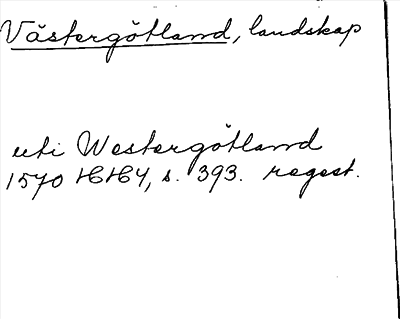 Västergötland, landskap
uti Westergötland
1570 HH4, s. 393. regest.